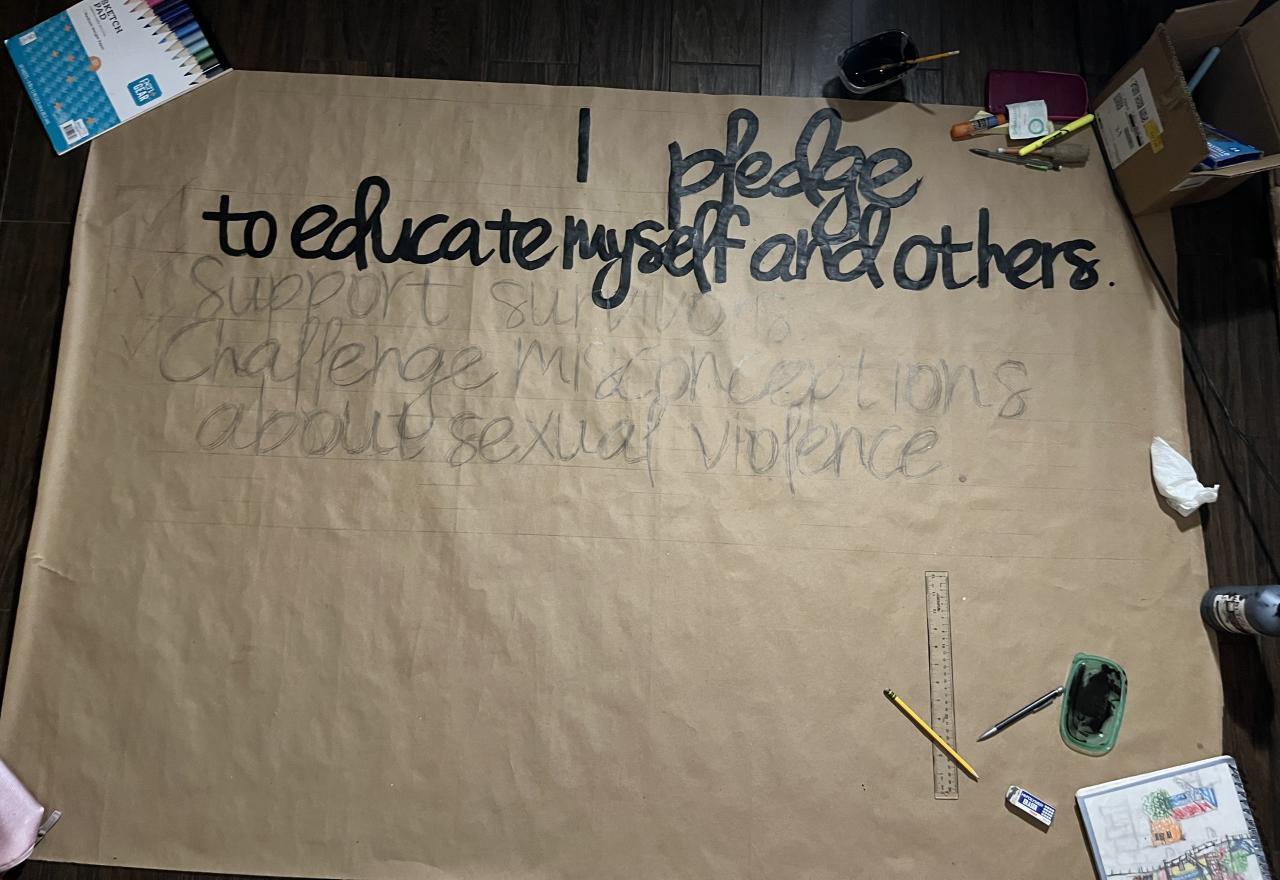 SKETCH
PAD
I pledge
to educate myself and others.
Support survivors
Challenge misconceptions
about sexual violence.